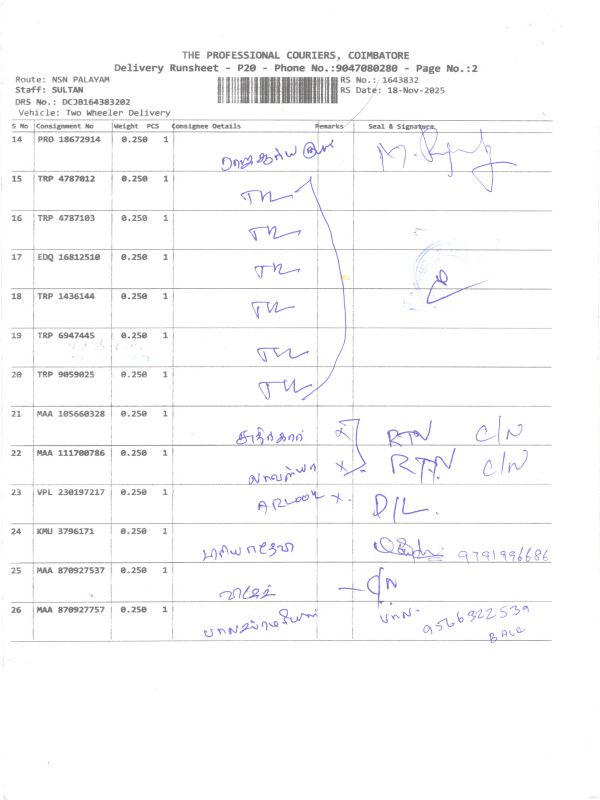 THE PROFESSIONAL COURIERS, COIMBATORE
Delivery Runsheet - P20 - Phone No.:9047080280 - Page No.:2
Route: NSN PALAYAM RS No.: 1643832
Staff: SULTAN RS Date: 18-Nov-2025
DRS No.: DCJB164383202
Vehicle: Two Wheeler Delivery
S No Consignment No Weight PCS Consignee Details Remarks Seal & Signature
14 PRO 18672914 0.250 1
15 TRP 4787012 0.250 1
16 TRP 4787103 0.250 1
17 EDQ 16812510 0.250 1
18 TRP 1436144 0.250 1
19 TRP 6947445 0.250 1
20 TRP 9059025 0.250 1
21 MAA 105660328 0.250 1 RTN C/N
22 MAA 111700786 0.250 1 x RTN C/N
23 VPL 230197217 0.250 1 x D/L.
24 KMU 3796171 0.250 1 9791996686
25 MAA 870927537 0.250 1 C/N
26 MAA 870927757 0.250 1 9566322539